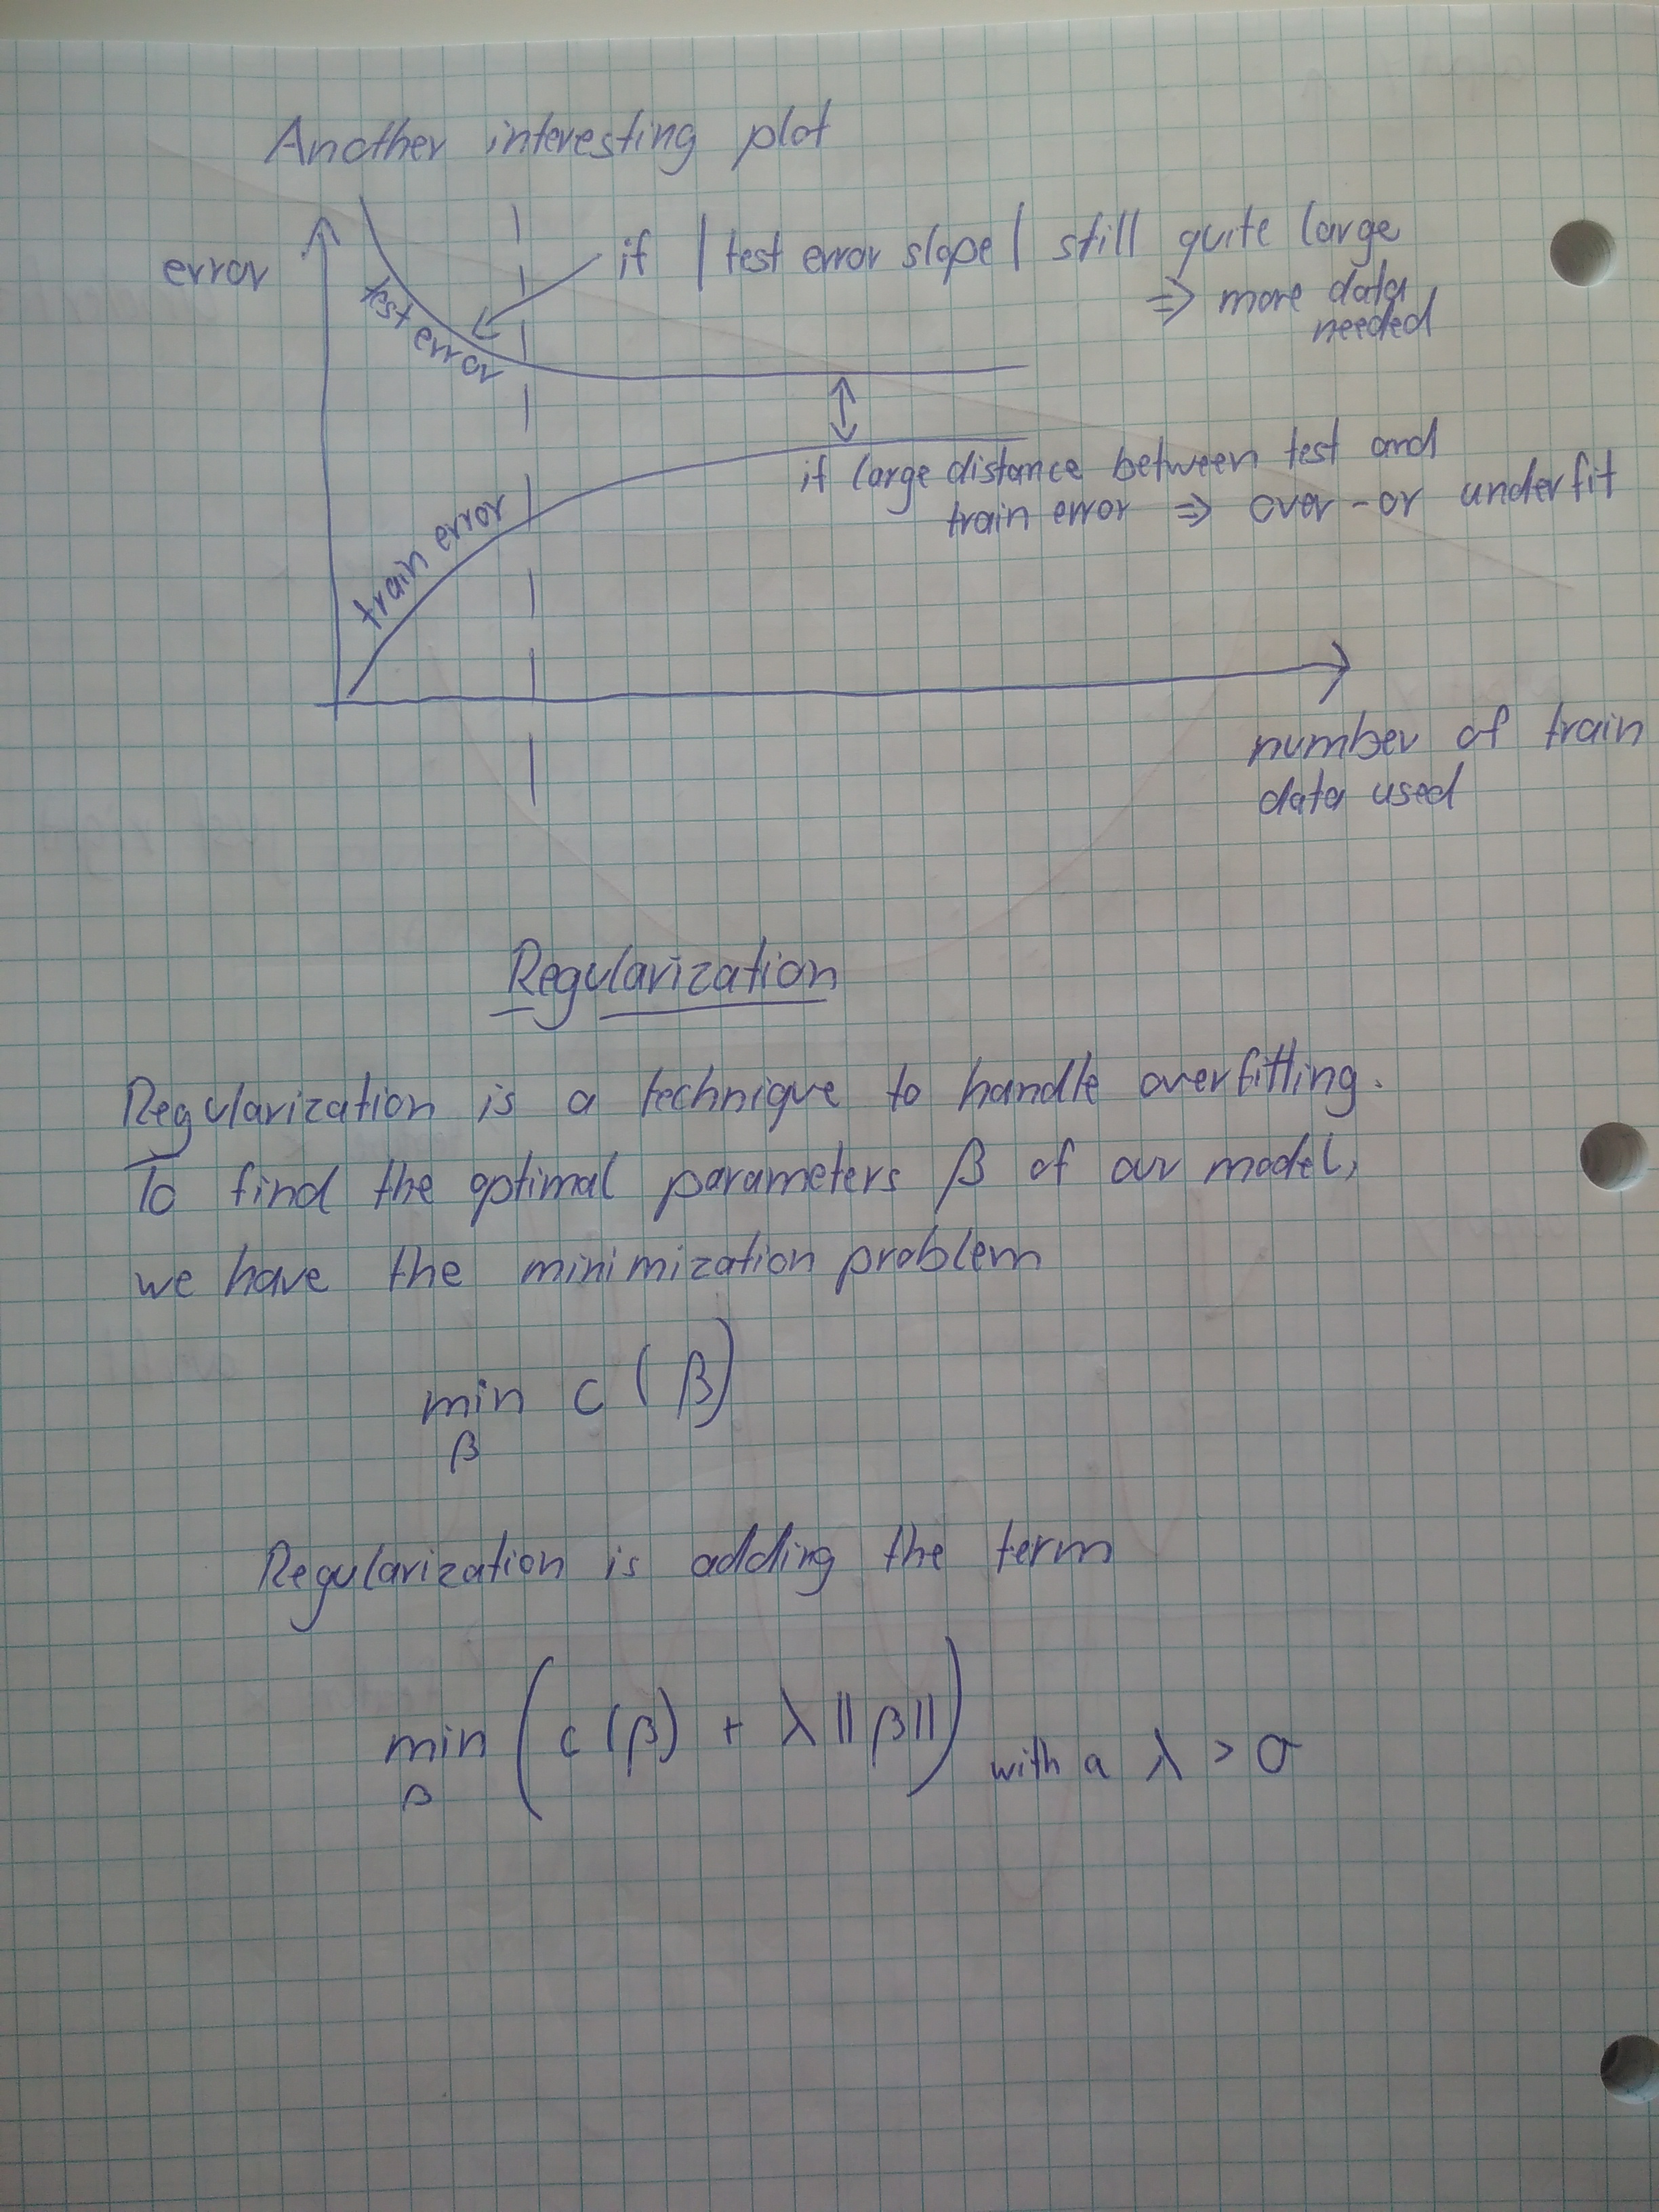 Another interesting plot
error
if | test error slope | still quite large
⇒ more data
needed
test error
if large distance between test and
train error ⇒ over-or underfit
train error
number of train
data used
Regularization
Regularization is a technique to handle overfitting.
To find the optimal parameters β of our model,
we have the minimization problem
min c (β)
β
Regularization is adding the term
min ( c (β) + λ || β || ) with a λ > 0
β